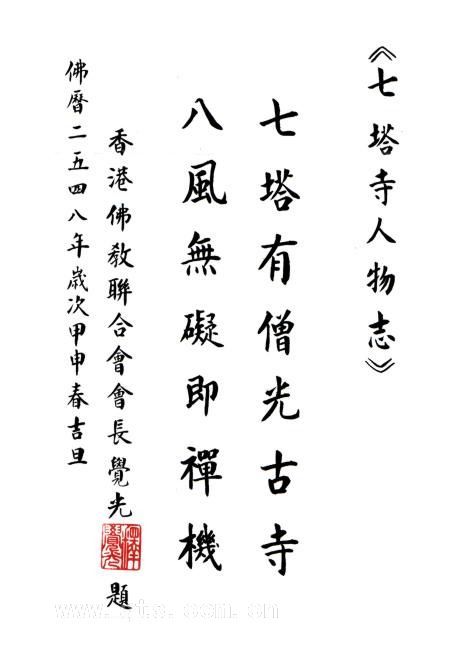 《七塔寺人物志》
七塔有僧光古寺
八風無礙即禪機
香港佛教聯合會會長覺光題
佛曆二五四八年歲次甲申春吉旦